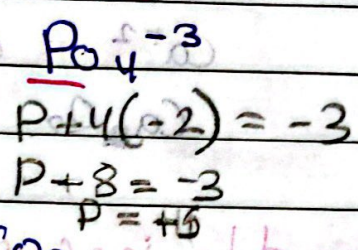 PO₄⁻³
P+4(-2) = -3
P+8 = -3
P = +5